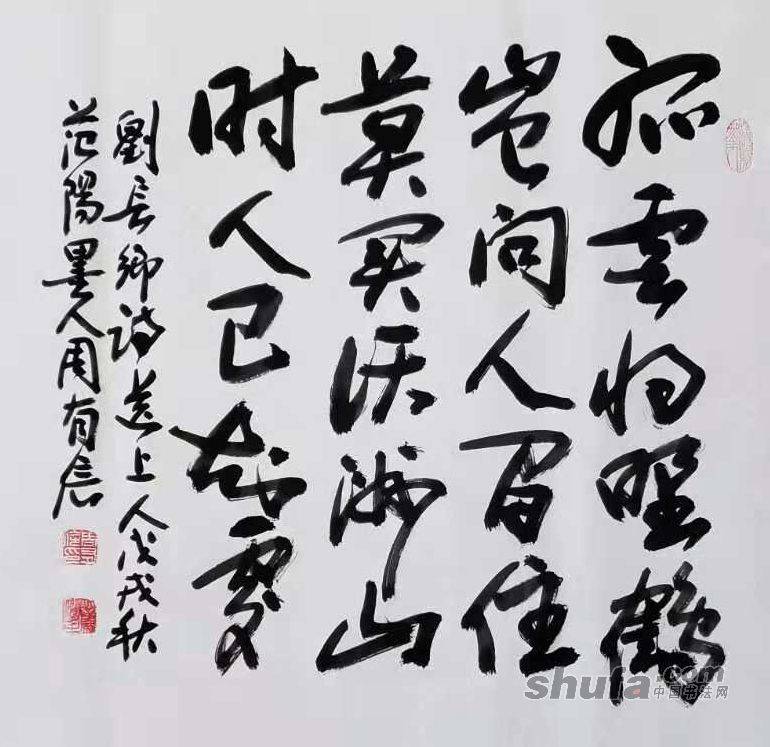 孤雲将野鹤
岂向人间住
莫买沃洲山
时人已知處
劉长卿诗送上人戊戌秋
范陽墨人周有
shufa.com
中国书法网